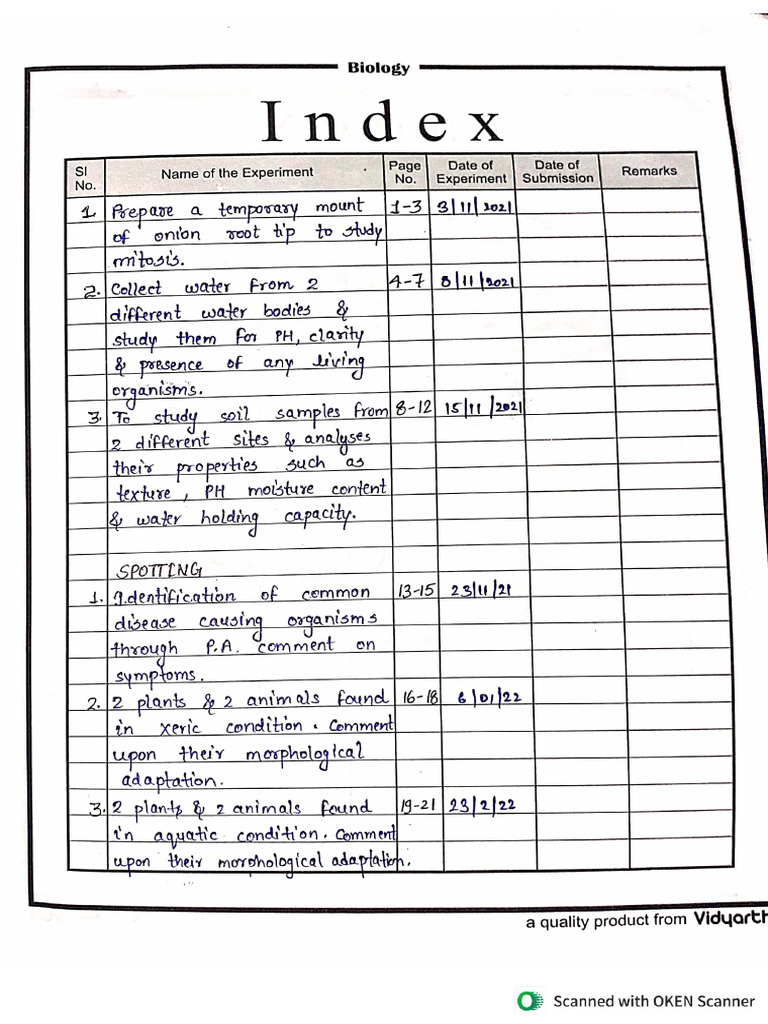 Biology
Index
Sl No. Name of the Experiment Page No. Date of Experiment Date of Submission Remarks
1. Prepare a temporary mount 1-3 3/11/2021
of onion root tip to study
mitosis.
2. Collect water from 2 4-7 8/11/2021
different water bodies &
study them for PH, clarity
& presence of any living
organisms.
3. To study soil samples from 8-12 15/11/2021
2 different sites & analyses
their properties such as
texture, PH moisture content
& water holding capacity.
SPOTTING
1. Identification of common 13-15 23/11/21
disease causing organisms
through P.A. comment on
symptoms.
2. 2 plants & 2 animals found 16-18 6/01/22
in xeric condition. Comment
upon their morphological
adaptation.
3. 2 plants & 2 animals found 19-21 23/2/22
in aquatic condition. Comment
upon their morphological adaptation.
a quality product from Vidyarth
Scanned with OKEN Scanner